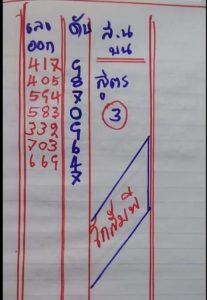 เลข ดับ ส.น
ออก บน
417 9
405 8 สูตร
594 7
583 0 3
339 9
703 6
669 4
7
โกสัมพี